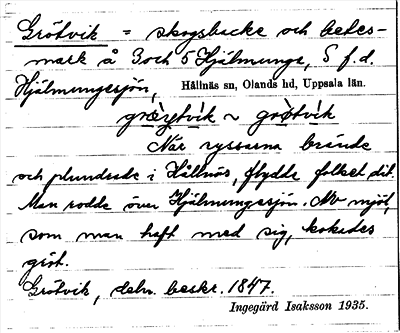 Grötvik = skogsbacke och betes-
mark å 3 och 5 Hjälmunge, S f.d.
Hjälmungesjön, Hållnäs sn, Olands hd, Uppsala län.
græ̀ytvi̇k ~ grø̀tvi̇k
När ryssarna brände
och plundrade i Hållnäs, flydde folket dit.
Man rodde över Hjälmungesjön. Av mjöl,
som man haft med sig, kokades
gröt.
Grötvik, deln. beskr. 1847.
Ingegärd Isaksson 1935.